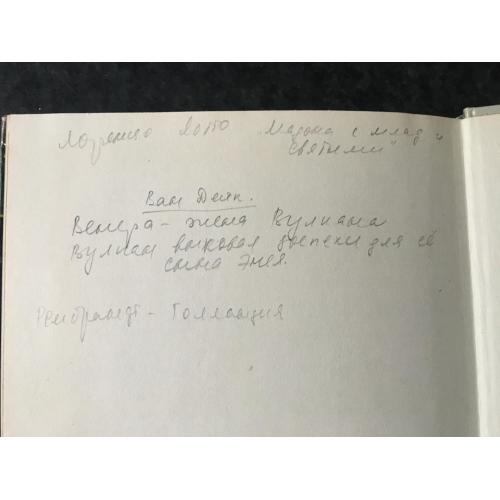 Лоренцо Лотто „Мадона с млад и
святыми"
Ван Дейк.
Венера - жена Вулкана
Вулкан выковал доспехи для её
сына Энея.
Рембрандт - Голландия